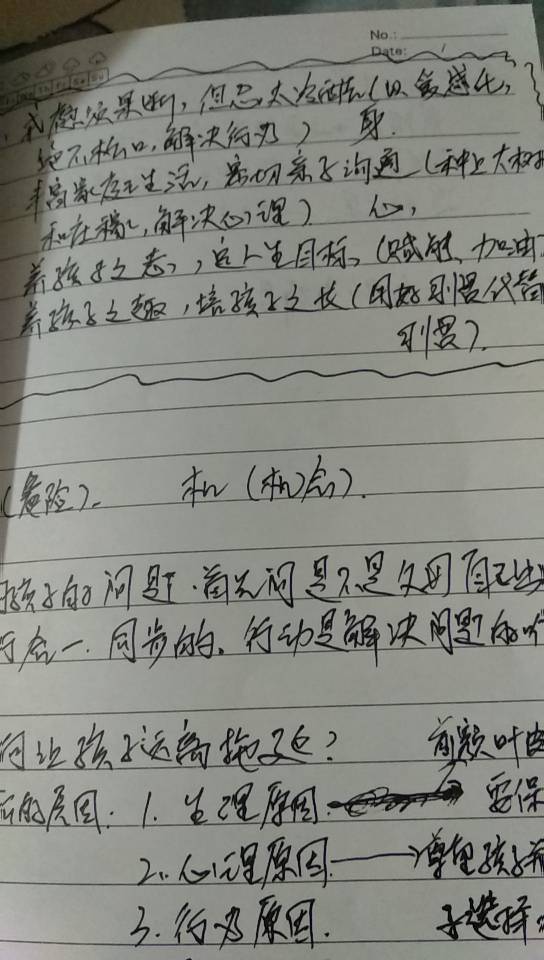 No.:
Date:
戒瘾须果断,但忌太冷酷(以敏感化,
绝不松口,解决行为) 身.
丰富家庭生活,密切亲子沟通(种上大树
和庄稼,解决心理) 心,
养孩子之志,定人生目标。(赋能、加油
养孩子之趣,培孩子之长(用好习惯代替
习惯).
(危险)、 机(机会).
孩子的问题.首先问是不是父母自己出
行合一.同步的.行动是解决问题的
何让孩子远离拖延? 前额叶皮
后的原因.1.生理原因. 要保
2.心理原因.——→尊重孩子
3.行为原因. 子选择